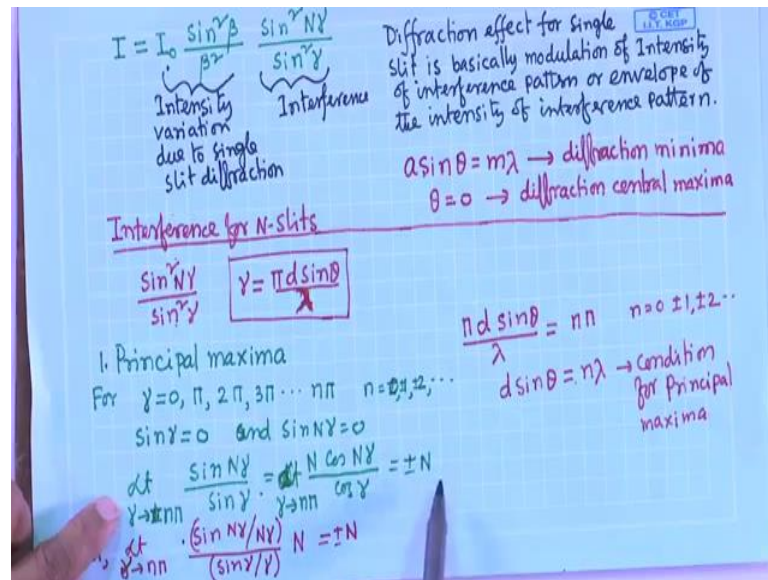 I = I₀ sin²β/β² sin²Nγ/sin²γ
Intensity variation due to single slit diffraction
Interference
Diffraction effect for single
slit is basically modulation of Intensity
of interference pattern or envelope of
the intensity of interference pattern.
© CET
I.I.T. KGP
a sinθ = mλ → diffraction minima
θ = 0 → diffraction central maxima
Interference for N-slits
sin²Nγ/sin²γ
γ = πd sinθ/λ
1. Principal maxima
For γ=0, π, 2π, 3π ... nπ n=0,1,2,...
sinγ=0 and sinNγ=0
Lt γ→±nπ sinNγ/sinγ = Lt γ→nπ N cos Nγ/cosγ = ±N
Lt γ→nπ (sin Nγ/Nγ)/(sinγ/γ) N = ±N
πd sinθ/λ = nπ n=0 ±1, ±2..
d sinθ = nλ → Condition
for Principal
maxima